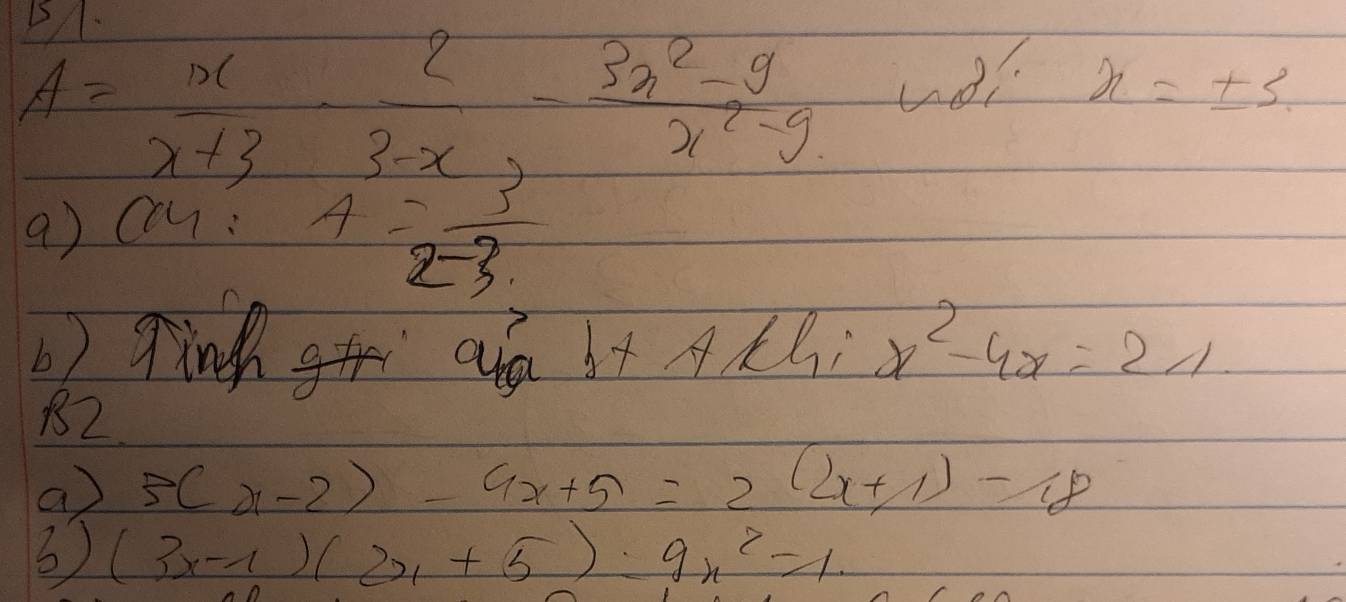 B1.
A = x/(x+3) - 2/(3-x) - (3x²-9)/(x²-9). với x = ±3.
a) CM: A = 3/(x-3).
b) Tính gtrị của bt A khi x²-4x=21.
B2.
a) 5(x-2) - 4x+5 = 2(2x+1) - 18
b) (3x-1)(2x+5) = 9x²-1.